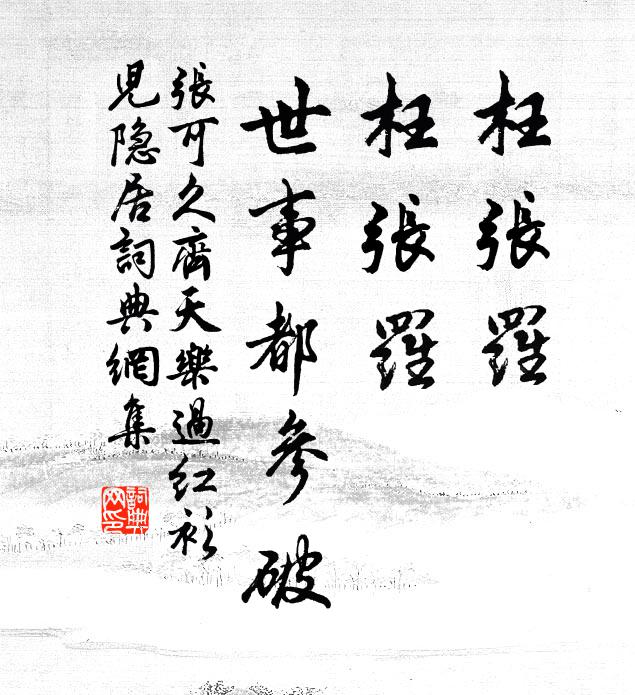 枉張羅
枉張羅
世事都參破
張可久齊天樂過紅衫
兒隐居詞典網集
詞典
网印